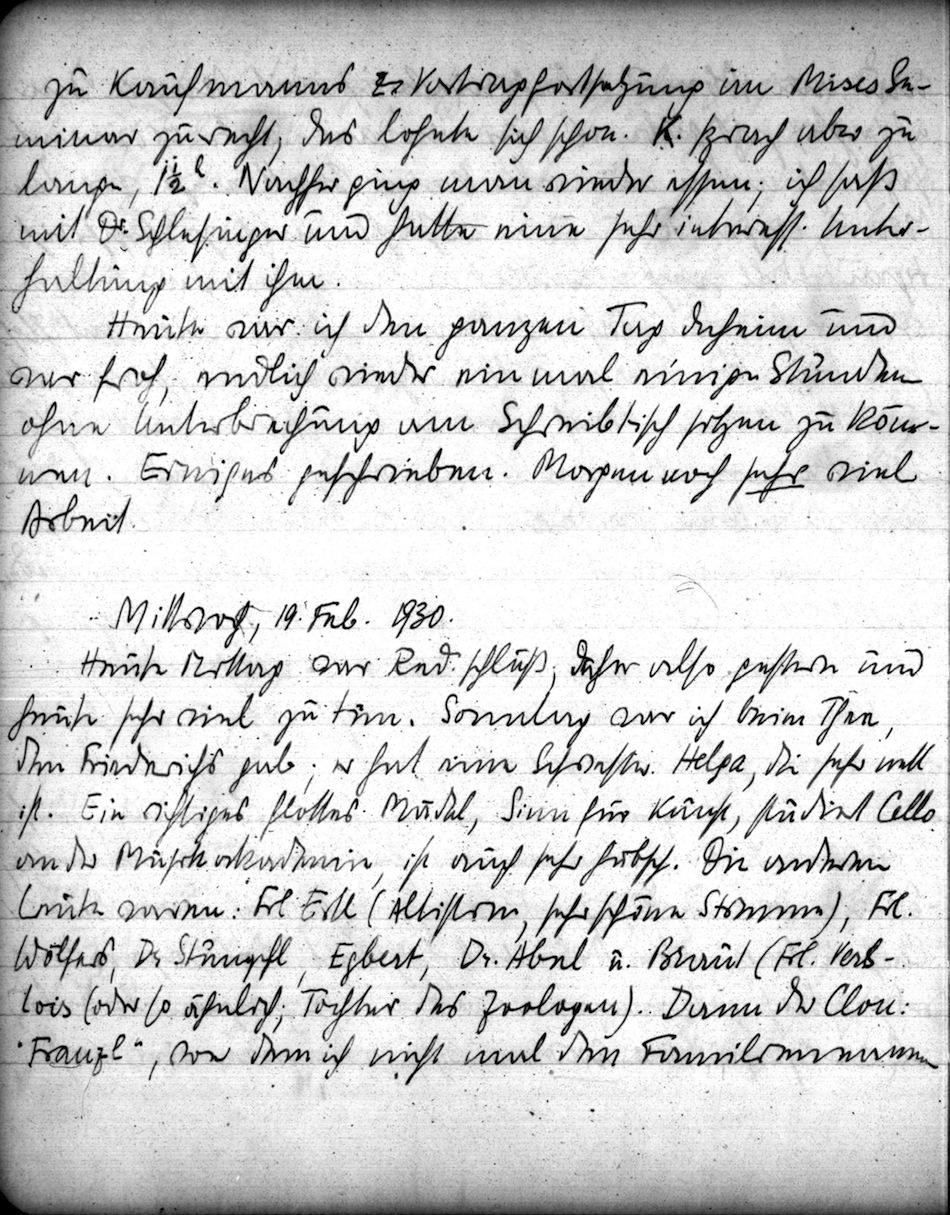 zu Kaufmanns Vortragsfortsetzung im Mises Se-
minar zurecht, das lohnte sich schon. K. sprach aber zu
lange, 1 1/2 h. Nachher ging man wieder essen; ich saß
mit Dr. Schlesinger und hatte eine sehr interess. Unter-
haltung mit ihm.
Heute war ich den ganzen Tag daheim und
war froh, endlich wieder einmal einige Stunden
ohne Unterbrechung am Schreibtisch sitzen zu kön-
nen. Einiges geschrieben. Morgen noch sehr viel
Arbeit.
Mittwoch, 19. Feb. 1930.
Heute Mittag war Red. schluß, daher also gestern und
heute sehr viel zu tun. Sonntag war ich beim Thee,
den Friederichs gab; er hat eine Schwester Helga, die sehr nett
ist. Ein richtiges flottes Mädel, Sinn für Kunst, studiert Cello
an der Musikakademie, ist auch sehr hübsch. Die anderen
Leute waren: Frl. Ertl (Altistin, sehr schöne Stimme), Frl.
Wolfers, Dr. Stumpfl, Egbert, Dr. Abel u. Braut (Frl. Vers-
lois (oder so ähnlich; Tochter des Zoologen). Dann der Clou:
"Franzl", von dem ich nicht mal den Familiennamen